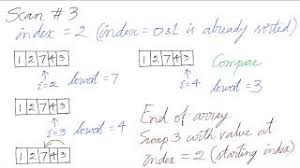 Scan #3
index = 2 (index = 0&1 is already sorted)
1 2 7 4 3
i=2 lowest = 7
1 2 7 4 3
i=3 lowest = 4
1 2 7 4 3
Compare
i=4 lowest = 3
1 2 7 4 3
End of array
Swap 3 with value at
index = 2 (starting index)